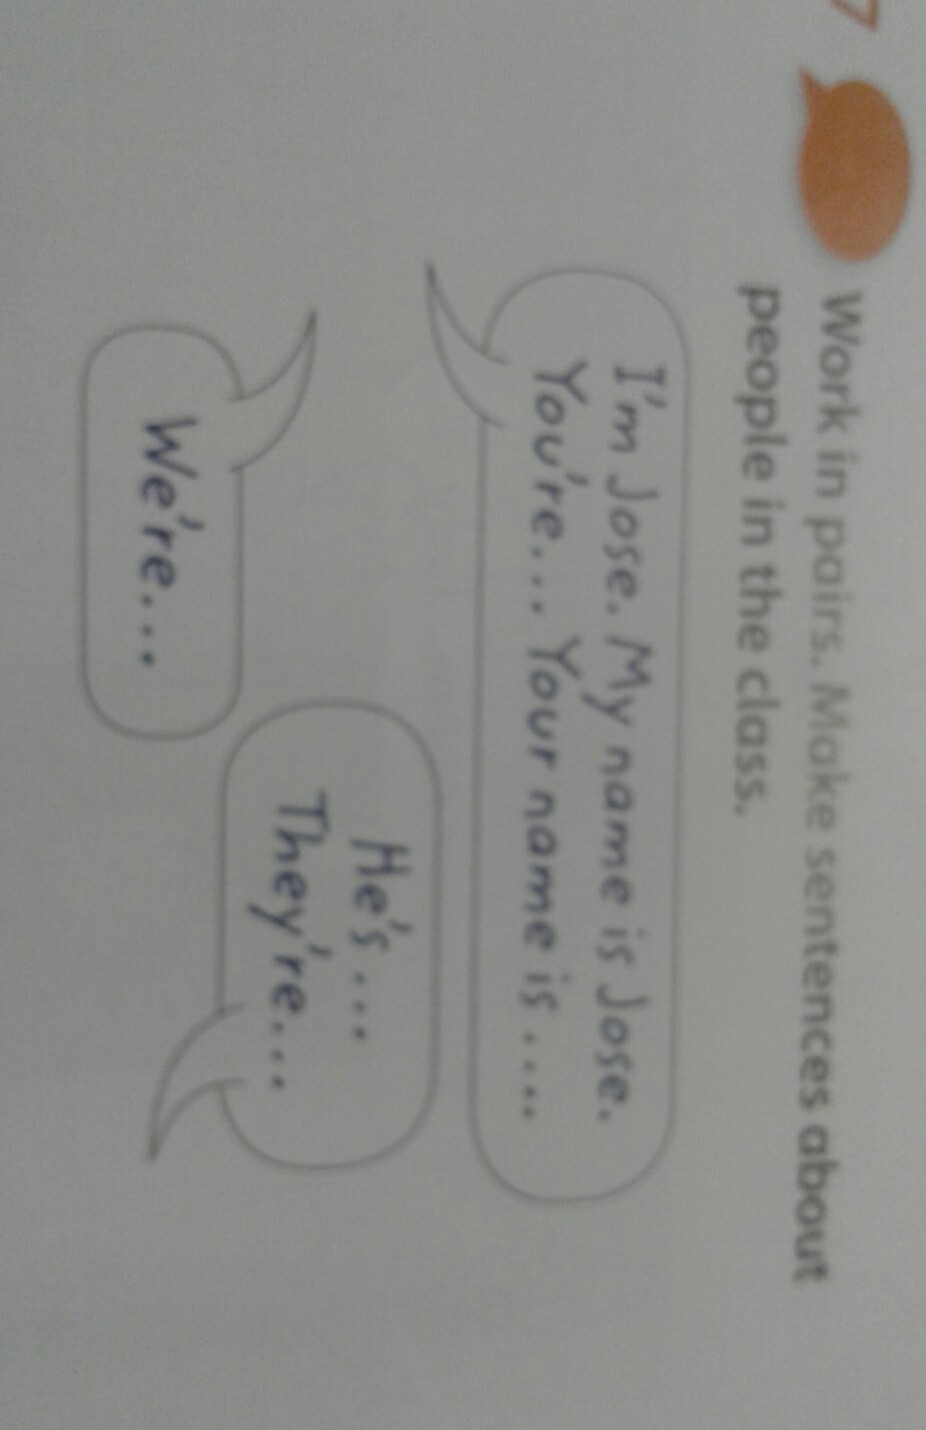 7
Work in pairs. Make sentences about
people in the class.
I'm Jose. My name is Jose.
You're... Your name is ....
He's ...
They're...
We're...